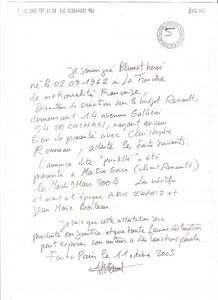 Je soussigné Plumet henri
né le 02.09.1962 à La Tronche
de nationalité Française,
Directeur de création sur le budget Renault,
demeurant 14 avenue Galliéni
94230 CACHAN, n'ayant aucun
lien de parenté avec Christophe
atteste les faits suivants:
L'annonce dite "poubelle" a été
présentée à Maître (client Renault)
le Mardi 9 Mars 2004. Les créatifs
étaient à l'époque
Jean Marc Boileau
Je sais que cette attestation sera
produite en justice et que toute fausse déclaration
peut exposer son auteur à des sanctions pénales.
Fait à Paris le 11 octobre 2005